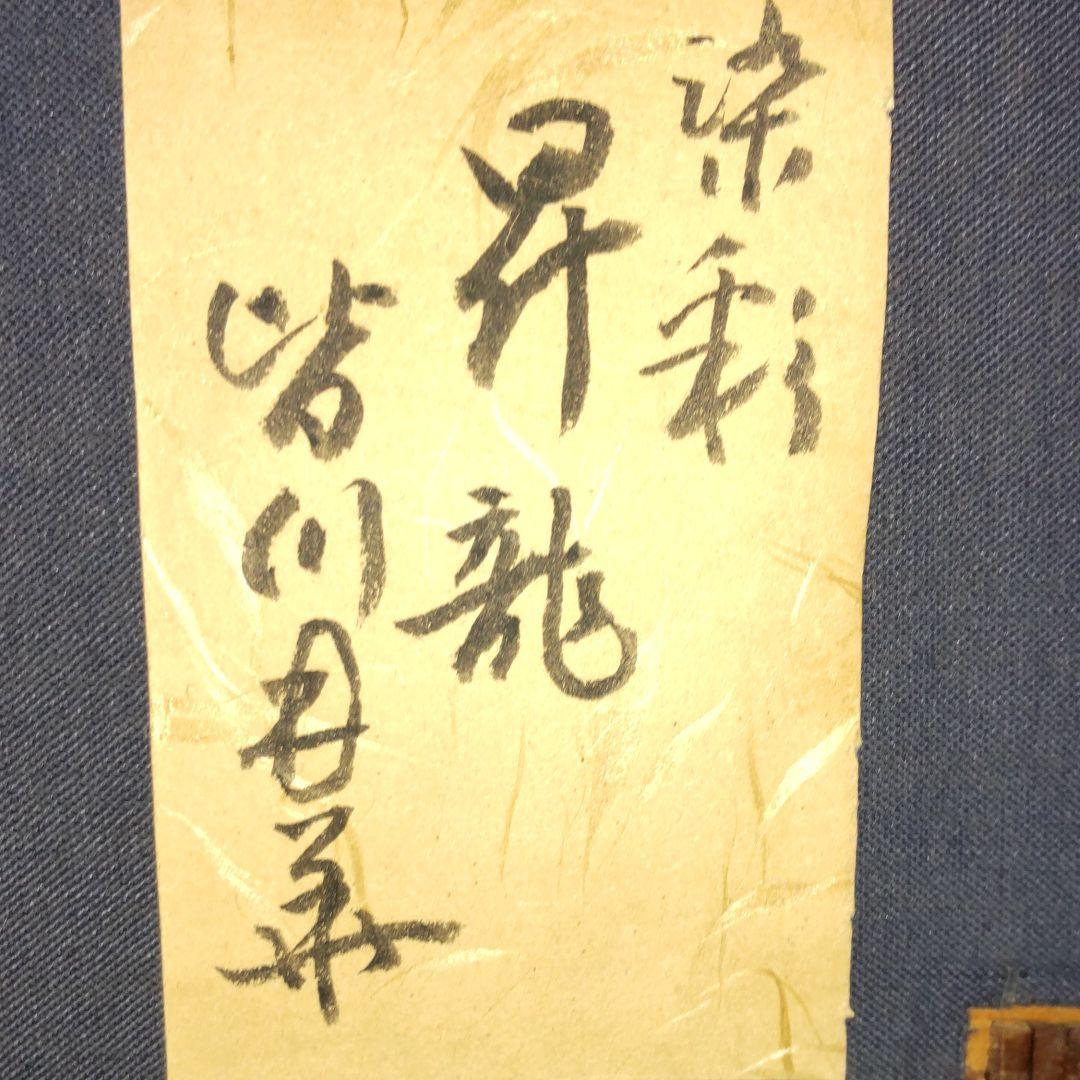 染彩
昇龍
皆川月華